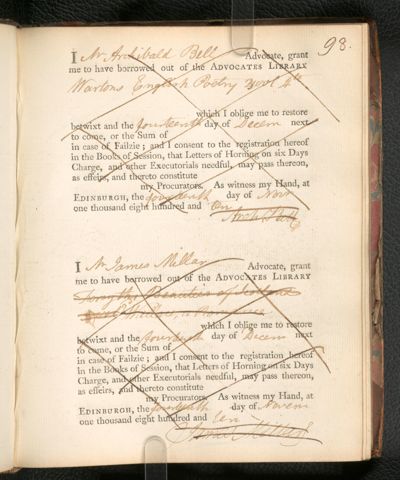 98.
I Mr Archibald Bell Advocate, grant
me to have borrowed out of the ADVOCATES LIBRARY
Wartons English Poetry 4to
which I oblige me to restore
betwixt and the fourteenth day of Decem next
to come, or the Sum of
in case of Failzie; and I consent to the registration hereof
in the Books of Session, that Letters of Horning on six Days
Charge, and other Executorials needful, may pass thereon,
as effeirs, and thereto constitute
my Procurators. As witness my Hand, at
EDINBURGH, the fourteenth day of Novr
one thousand eight hundred and
Arch Bell
I Mr James Millar Advocate, grant
me to have borrowed out of the ADVOCATES LIBRARY
Beauties of Scotland
which I oblige me to restore
betwixt and the fourteenth day of Decem next
to come, or the Sum of
in case of Failzie; and I consent to the registration hereof
in the Books of Session, that Letters of Horning on six Days
Charge, and other Executorials needful, may pass thereon,
as effeirs, and thereto constitute
my Procurators. As witness my Hand, at
EDINBURGH, the fourteenth day of Novem
one thousand eight hundred and
James Millar